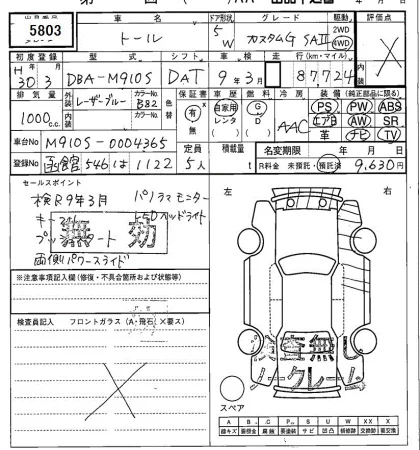 5803
車名
ドア形状
グレード
駆動
評価点
トール
5 W
カスタムG SAⅡ
2WD
4WD
初度登録
型式
シフト
車検
走行(km・マイル)
H 30 3
DBA-M910S
DAT
9年3月
87,724
排気量
外装
カラーNo.
色替
保証書
車歴
燃料
冷房
装備(純正部品に限る)
1000 c.c.
レーザーブルー
B82
有
無
自家用
レンタ
G
D
AAC
PS PW ABS
エアB AW SR
革 ナビ TV
内装
カラーNo.
車台No
M910S-0004365
定員
積載量
名変期限 年 月 日
登録No
函館 546 は 1122
5人
t
R料金 未預託・預託済
9,630円
セールスポイント
検R9年3月
パノラマモニター
LEDヘッドライト
両側パワースライド
無効
左
右
※注意事項記入欄(修復・不具合箇所および状態等)
検査員記入
フロントガラス(A・飛石)(X要ス)
査無し
クレー
スペア
A B C P S U W XX X
線キズ 要板金 腐蝕 要塗装 サビ 凹凸 補修跡 交換跡 要交換